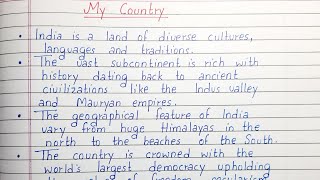 My Country
• India is a land of diverse cultures,
languages and traditions.
• The vast subcontinent is rich with
history dating back to ancient
civilizations like the Indus valley
and Mauryan empires.
• The geographical feature of India
vary from huge Himalayas in the
north to the beaches of the South.
• The country is crowned with the
world's largest democracy upholding